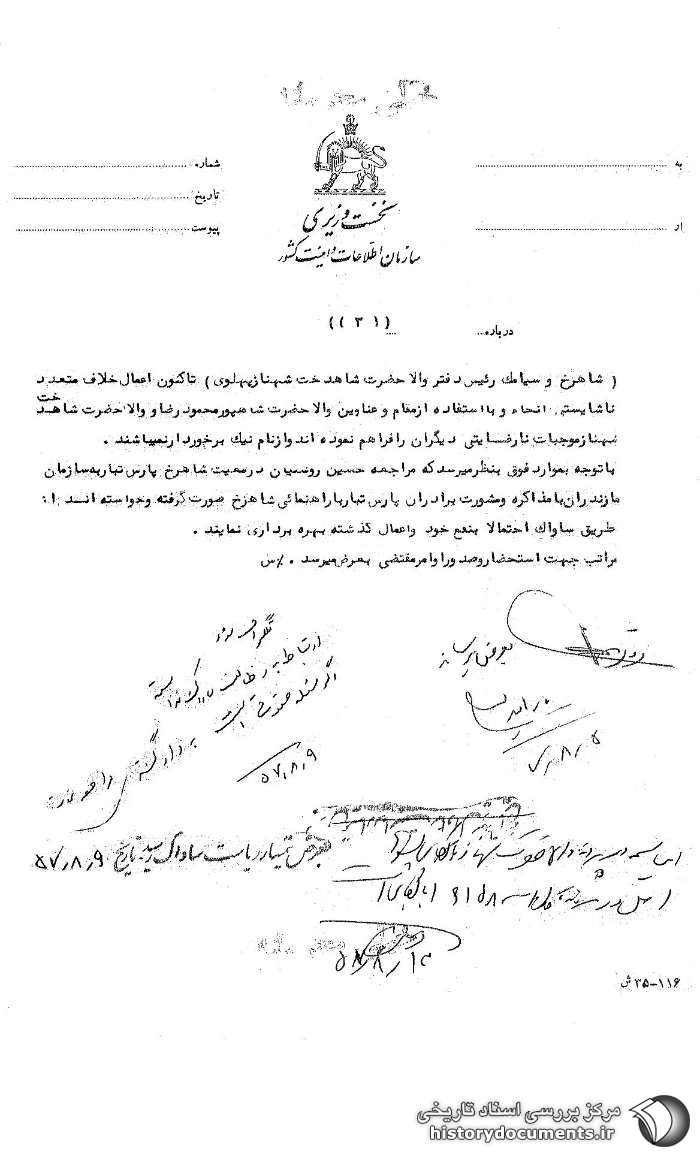 خیلی محرمانه
به
شماره
از
تاریخ
پیوست
نخست وزیری
سازمان اطلاعات و امنیت کشور
درباره (( ۳۱ ))
( شاهرخ و سیامک رئیس دفتر والا حضرت شاهدخت شهناز پهلوی ) تاکنون اعمال خلاف متعدد
ناشایستی انحاء و با استفاده از مقام و عناوین والا حضرت شاهپور محمود رضا و والا حضرت شاهدخت
شهناز موجبات نارضایتی دیگران را فراهم نموده اند و از نام نیک برخوردار نمیباشند .
با توجه بموارد فوق بنظر میرسد که مراجعه حسین روسیان در معیت شاهرخ پارس تبار به سازمان
مازندران با مذاکره و مشورت برادران پارس تبار با راهنمائی شاهرخ صورت گرفته و خواسته انــد از
طریق ساواک احتمالا بنفع خود و اعمال گذشته بهره برداری نمایند .
مراتب جهت استحضار و صدور اوامر مقتضی بعرض میرسد . %س
بعرض برسانید
ارتباط به وظائف ساواک نداشته
اگر مسئله حقوقی است به دادگستری
۵۷،۸،۹
بعرض تیمسار ریاست ساواک رسید بتاریخ ۵۷،۸،۹
خیلی محرمانه
۱۱۶-۳۵ ش
مرکز بررسی اسناد تاریخی
historydocuments.ir